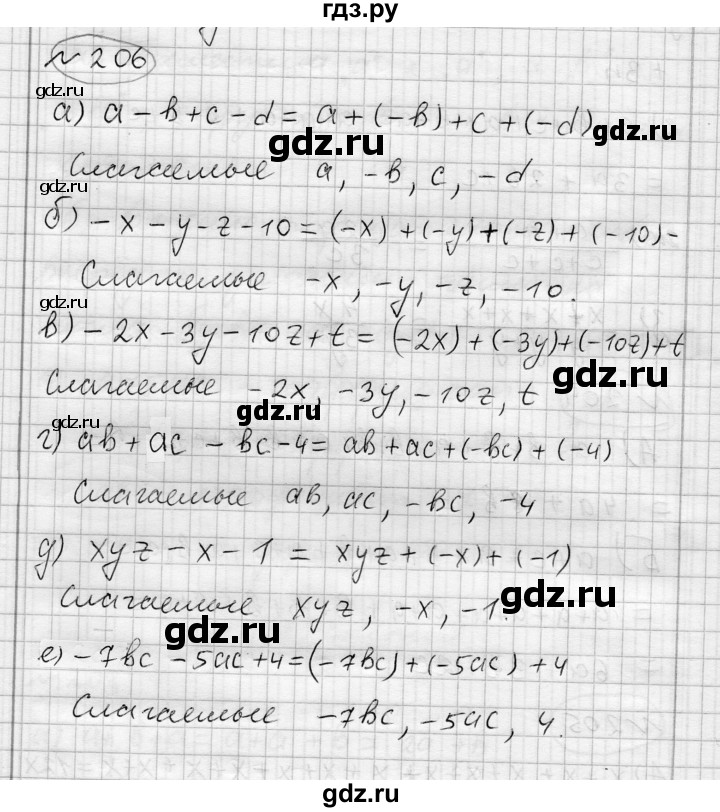 гдз.ру
№206
gdz.ru
а) a - b + c - d = a + (-b) + c + (-d)
gdz.ru
gdz.ru
Слагаемые a, -b, c, -d.
gdz.ru
б) -x - y - z - 10 = (-x) + (-y) + (-z) + (-10) -
Слагаемые -x, -y, -z, -10.
gdz.ru
в) -2x - 3y - 10z + t = (-2x) + (-3y) + (-10z) + t
gdz.ru
Слагаемые -2x, -3y, -10z, t
gdz.ru
г) ab + ac - bc - 4 = ab + ac + (-bc) + (-4)
Слагаемые ab, ac, -bc, -4
д) xyz - x - 1 = xyz + (-x) + (-1)
Слагаемые xyz, -x, -1.
gdz.ru
gdz.ru
е) -7bc - 5ac + 4 = (-7bc) + (-5ac) + 4
Слагаемые -7bc, -5ac, 4.